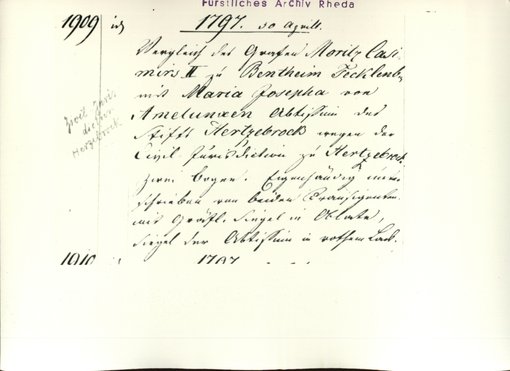 Fürstliches Archiv Rheda
1909 id 1797. 30 Aprill.
Vergleich des Grafen Moritz Casi-
mirs II zu Bentheim Tecklenb.
mit Maria Josepha von
Amelunxen Abtissin des
Stifts Hertzebrock wegen der
Civil Jurisdiction zu Hertzebrock.
zwei bogen. Eigenhändig unter-
schrieben von beiden Transigenten
mit Gräfl. Siegel in Oblate,
Siegel der Abtissin in rothem Lack.
Herzebrock
1910 1797